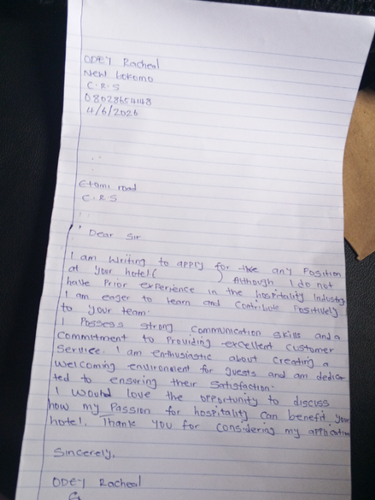 ODEY Racheal
New Lokomo
C.R.S
08028654148
4/6/2026
Etomi road
C.R.S
Dear Sir
I am writing to apply for the any Position
at your hotel ( ) Although I do not
have Prior experience in the hospitality Industry
I am eager to learn and Contribute Positively
to your team.
I Possess strong Communication skills and a
Commitment to Providing excellent Customer
Service. I am enthusiastic about creating a
welcoming environment for guests and am dedica
ted to ensuring their satisfaction.
I would love the opportunity to discuss
how my Passion for hospitality can benefit your
hotel. Thank you for considering my application
Sincerely,
ODEY Racheal